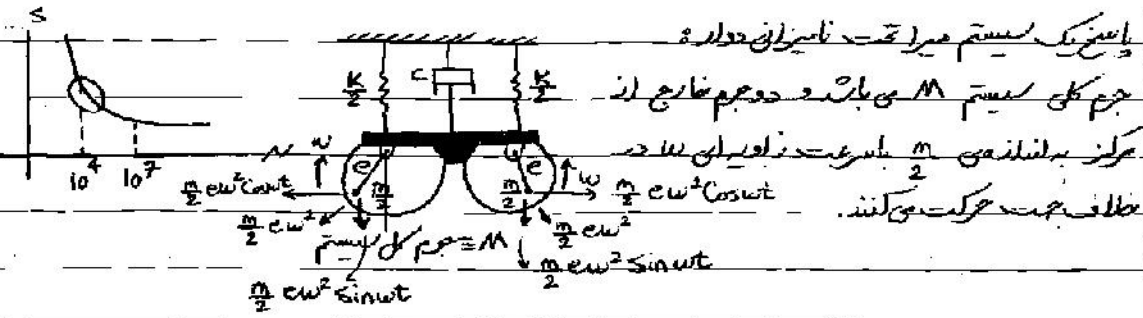 پاسخ یک سیستم میرا تحت نامیزانی دوار:
جرم کلی سیستم M می باشد و دو جرم خارج از
مرکز به اندازه‌ی m/2 با سرعت زاویه‌ای ω در
خلاف جهت حرکت می‌کنند.
S
N
10^4
10^7
K/2
C
K/2
ω
e
m/2
m/2 eω² Cosωt
m/2 eω²
m/2 eω² Sinωt
M ≡ جرم کل سیستم
e
m/2
ω
m/2 eω² Cosωt
m/2 eω²
m/2 eω² Sinωt